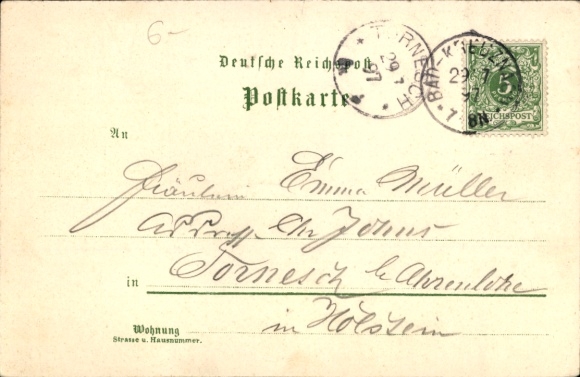 6-
Deutsche Reichspost
Postkarte
TORNESCH
29 7
97
BAD-KREUZN
29 7
97
7-8N
5
REICHSPOST
An
Fräulein Emma Müller
Chr Johns
in Tornesch b
Wohnung in Holstein
Strasse u. Hausnummer.